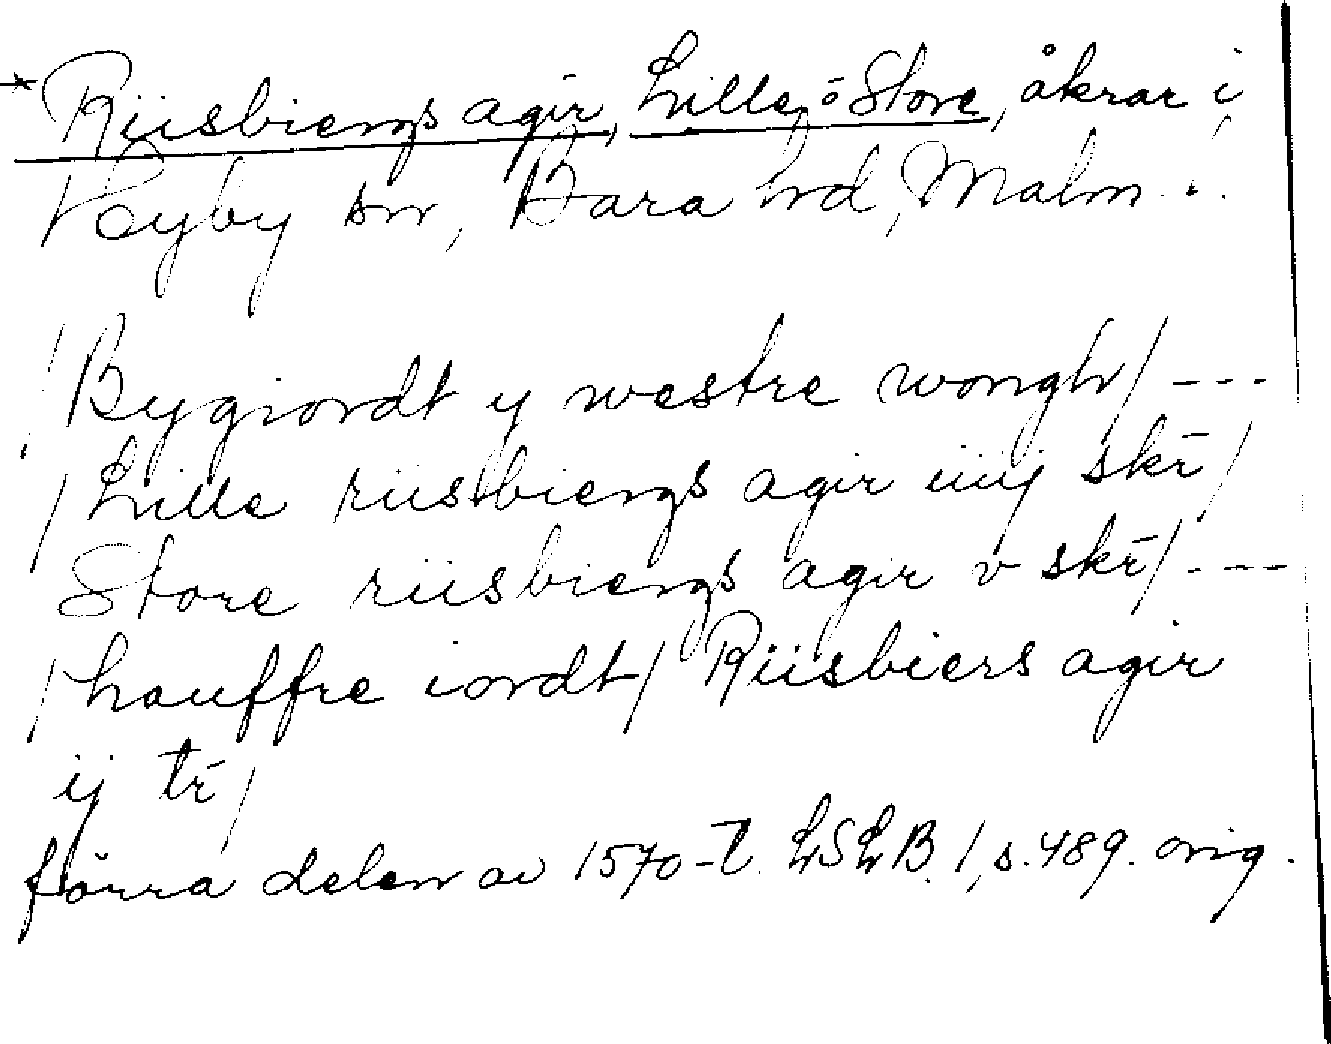 Riisbiergs agir, Lille, o Store, åkrar i
Kyrkby sn, Bara hrd, Malm. :.
/ Bygiordt y westre wongh / ---
/ Lille riisbiergs agir iiij skr̄ /
Store riisbiergs agir v skr̄ / ---
/ hauffre iordt / Riisbiers agir
ij tr̄ /
förra delen av 1570-t. LSLB. 1, s. 489. orig.